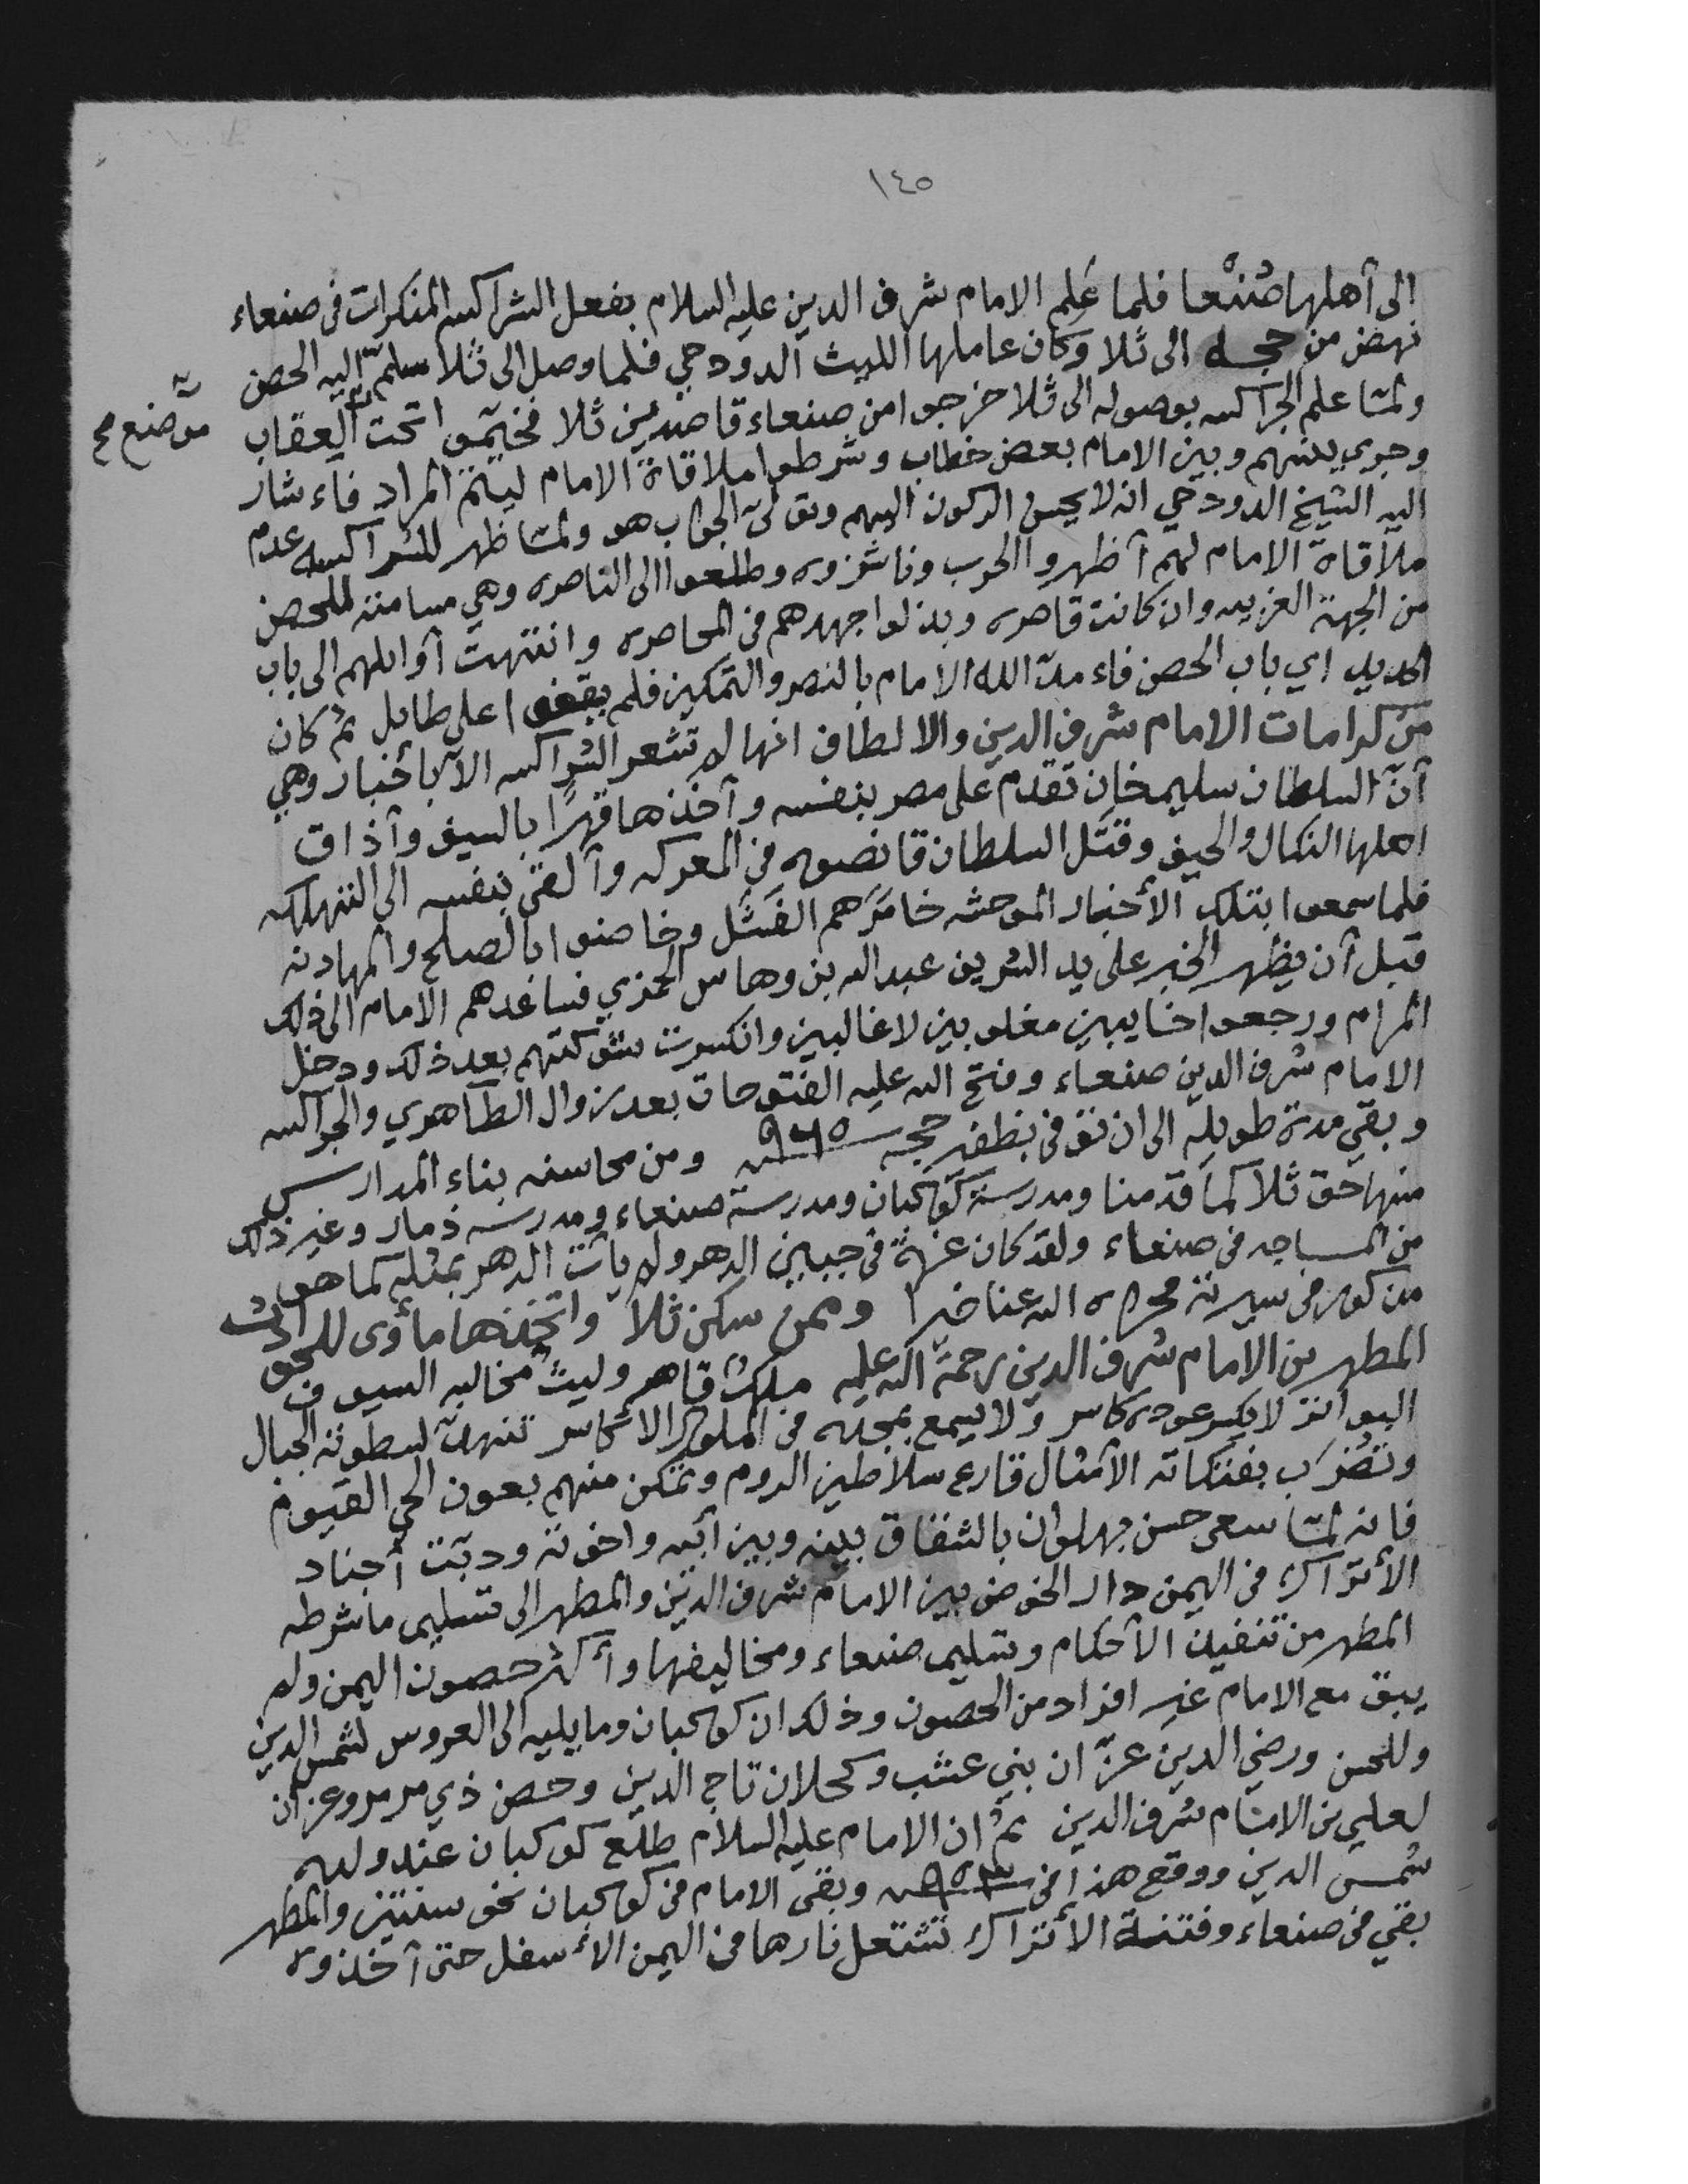 ١٤٥
الى أهلها صُنْعا فلما عَلم الامام شرف الدين عليه السلام بفعل الشراكسه المنكرات فى صنعاء
نهض من حجه الى ثلا وكان عاملها الليث الدودحي فلما وصل الى ثلا سلم اليه الحصن
ولمّا علم الجراكسه بوصوله الى ثلا خرجوا من صنعاء قاصدين ثلا فخيّموا تحت العقاب
موضع مح
وجرى بينهم وبين الامام بعض خطاب وشرطوا ملاقاة الامام ليتم المراد فأشار
اليه الشيخ الدودحي انه لا يحسن الركون اليهم وتولّى الجواب هو ولمّا ظهر للشراكسه عدم
ملاقاة الامام لهم أظهروا الحرب وناشزوه وطلعوا الى الناصره وهي مسامته للحصن
من الجهة الغربيه وان كانت قاصره وبذلوا جهدهم فى المحاصره وانتهت أوايلهم الى باب
الحديد اي باب الحصن فأمدّ الله الامام بالنصر والتمكين فلم يقفوا على طايل ثم كان
من كرامات الامام شرف الدين والالطاف انها لم تشعر الشراكسه الا بأخبار وهي
أنّ السلطان سليم خان تقدم على مصر بنفسه وأخذها قهرًا بالسيف وأذاق
اهلها النكال والحيف وقتل السلطان قانصوه فى المعركه وألقى بنفسه الى التهلكه
فلما سمعوا بتلك الأخبار الموحشه خامرهم الفَشَل وخاضوا بالصلح والمهادنه
قبل أن يظهر الخبر على يد الشريف عبدالله بن وهاس الحمزي فساعدهم الامام الى ذلك
المرام ورجعوا خايبين مغلوبين لا غالبين وانكسرت شوكتهم بعد ذلك ودخل
الامام شرف الدين صنعاء وفتح الله عليه الفتوحات بعد زوال الطاهري والجراكسه
وبقي مدة طويله الى ان توفى بظفير حجه سنه ٩٦٥ ومن محاسنه بناء المدارس
منها حق ثلا كما قدمنا ومدرسة كوكبان ومدرسة صنعاء ومدرسه ذمار وغير ذلك
من المساجد فى صنعاء ولقد كان غرة فى جبين الدهر ولم يأت الدهر بمثله كما هو
مذكور فى سيرته جزاه الله عنا خيرا وممن سكن ثلا واتخذها مأوى للحق
المطهر بن الامام شرف الدين رحمة الله عليه ملك قاهر وليث مخالبه السيوف
البواتر لا يكسر عوده كاسر ولا يسمع بمجله من الملوك الاكاسر تنهدّ لسطوته الجبال
وتضرب بفتكاته الأمثال قارع سلاطين الروم وتمكن منهم بعون الحي القيوم
فانه لمّا سعى حسن بهلوان بالشقاق بينه وبين أبيه واخوته ودبّت أجناد
الأتراك فى اليمن دار الخوض بين الامام شرف الدين والمطهر الى تسليم ما شرطه
المطهر من تنفيذ الأحكام وتسليم صنعاء ومخاليفها وأكثر حصون اليمن ولم
يبق مع الامام غير افراد من الحصون وذلك ان كوكبان وما يليه الى العروس لشمس الدين
وللحسن ورضي الدين عزّان بني عشب وكحلان تاج الدين وحصن ذي مرمر وعزان
لعلي بن الامام شرف الدين ثم ان الامام عليه السلام طلع كوكبان عند ولده
شمس الدين ووقع هذا فى سنه ٩٥٣ وبقى الامام فى كوكبان نحو سنتين والمطهر
بقي فى صنعاء وفتنة الأتراك تشتعل نارها فى اليمن الأسفل حتى أخذوه